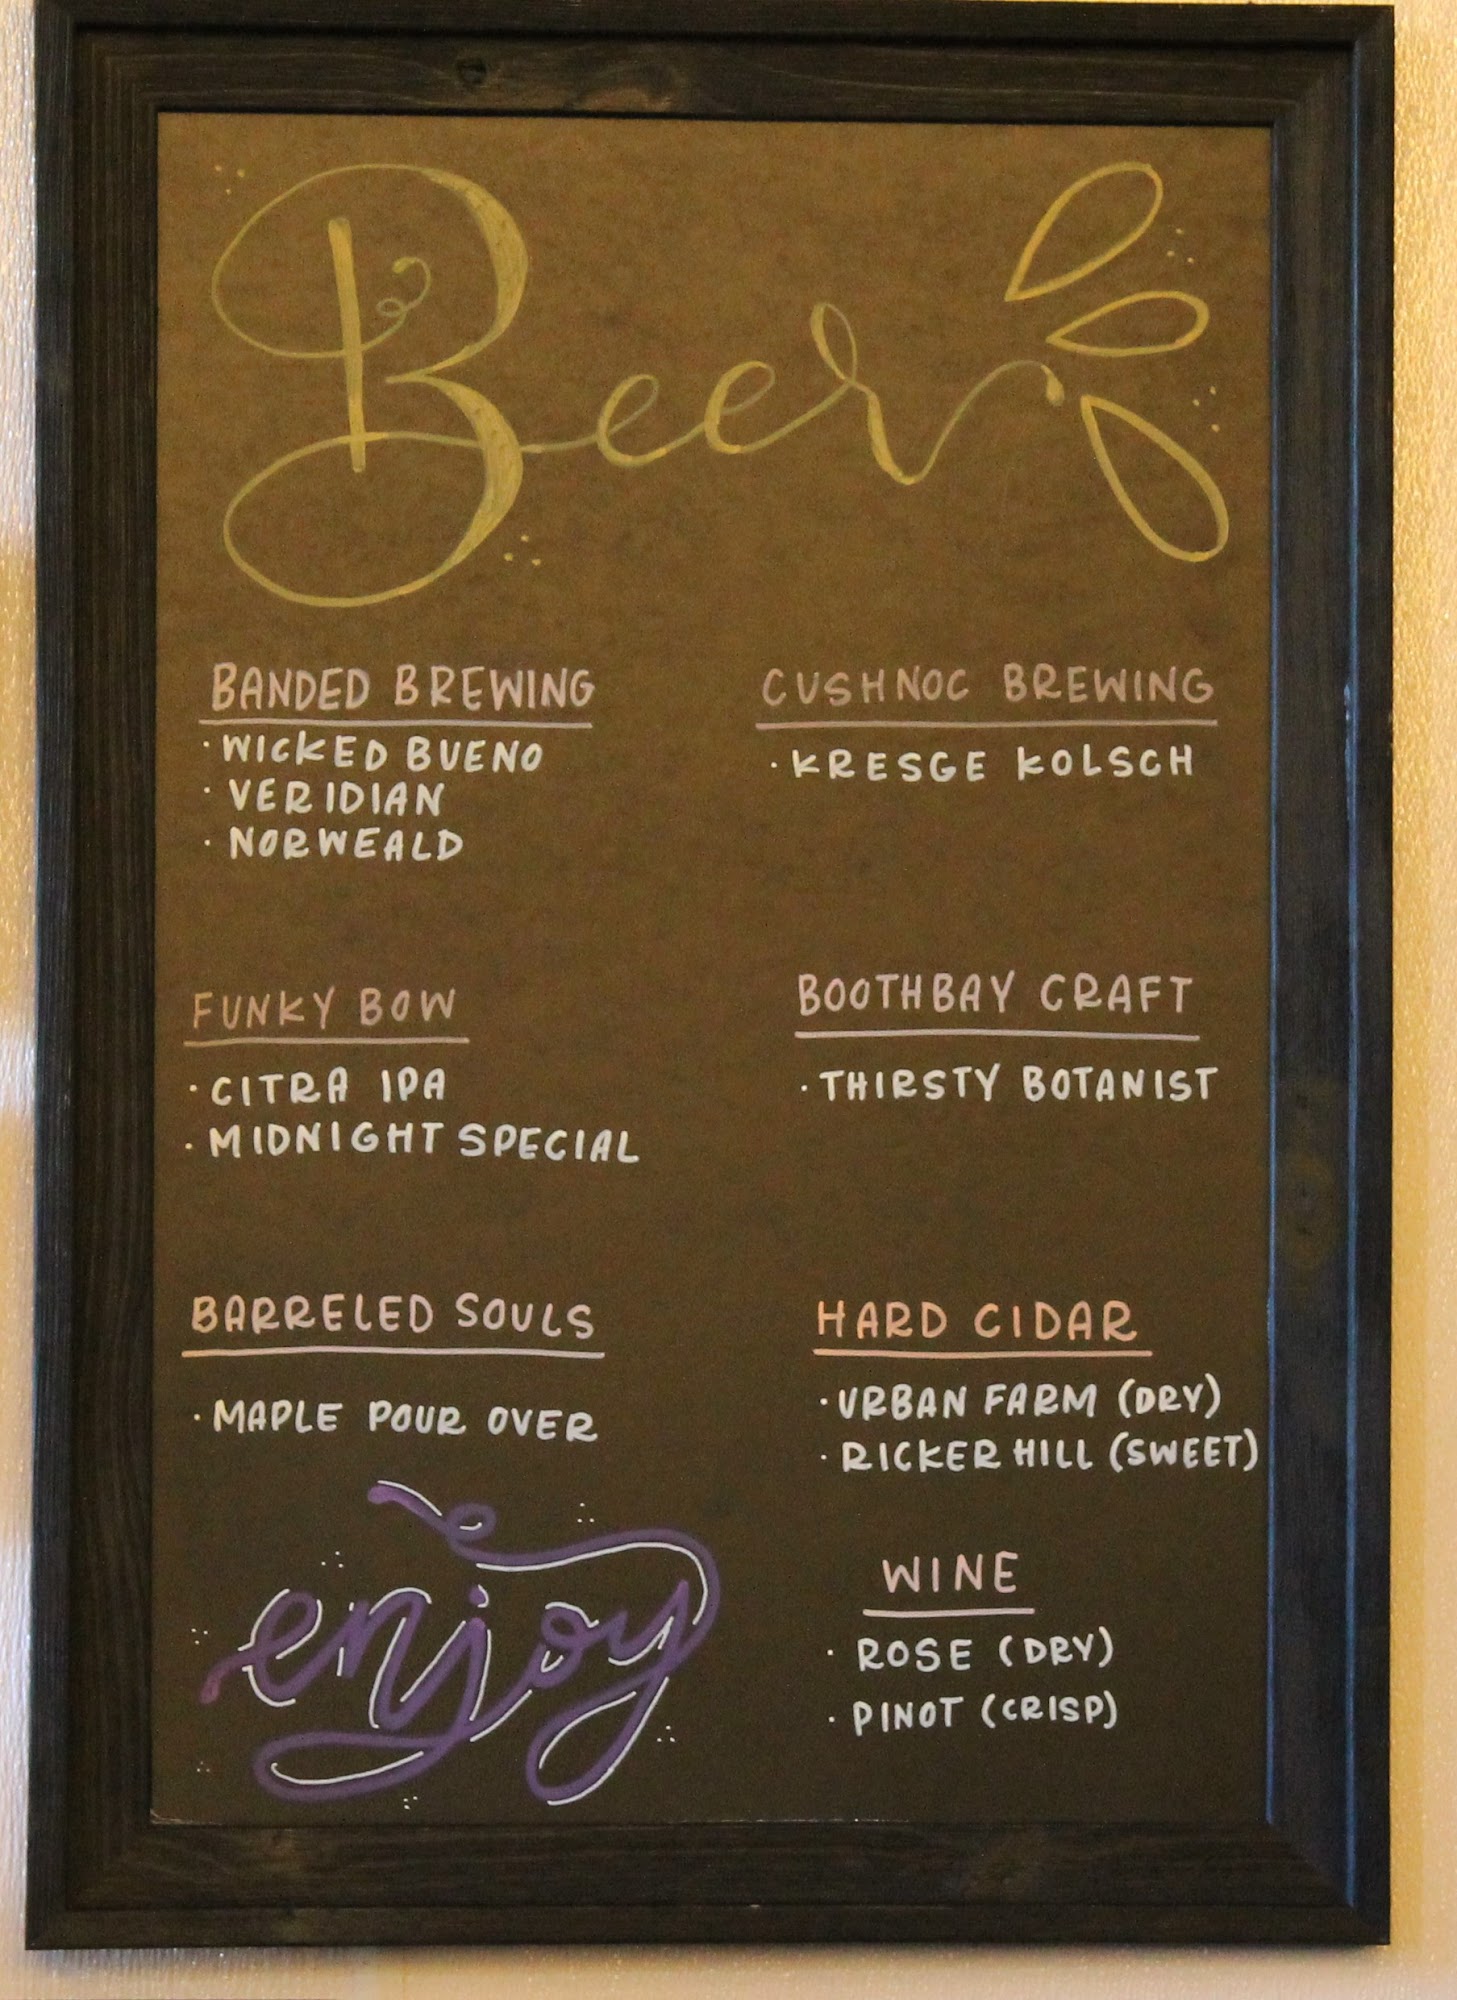 Beer
BANDED BREWING
· WICKED BUENO
· VERIDIAN
· NORWEALD
CUSHNOC BREWING
· KRESGE KOLSCH
FUNKY BOW
· CITRA IPA
· MIDNIGHT SPECIAL
BOOTHBAY CRAFT
· THIRSTY BOTANIST
BARRELED SOULS
· MAPLE POUR OVER
HARD CIDAR
· URBAN FARM (DRY)
· RICKER HILL (SWEET)
WINE
· ROSE (DRY)
· PINOT (CRISP)
enjoy